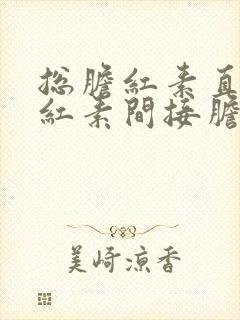 総膽紅素直
紅素間接膽
美崎凉香